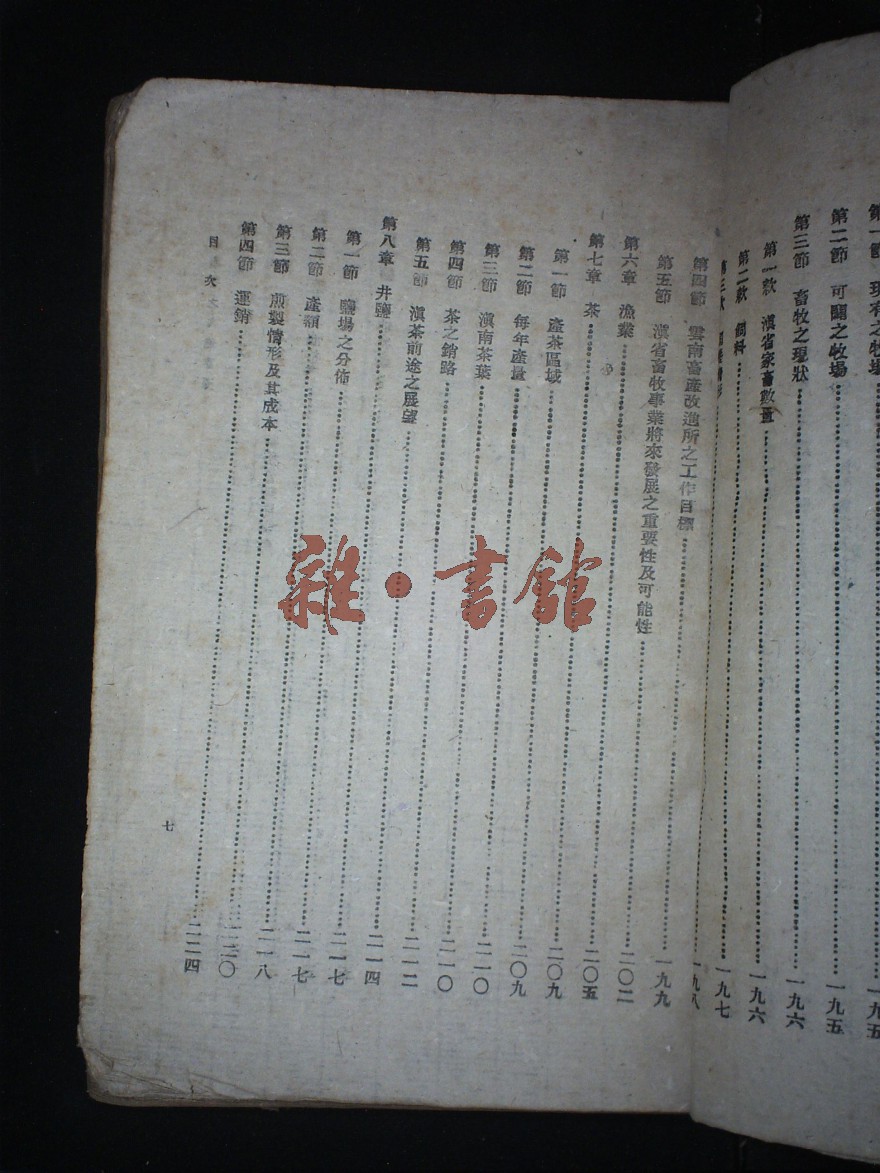 第一節 現有之牧場 一九五
第二節 可闢之牧場 一九五
第三節 畜牧之現狀 一九六
第一款 滇省家畜數量 一九六
第二款 飼料 一九七
第三款 一九八
第四節 雲南畜產改進所之工作目標 一九九
第五節 滇省畜牧事業將來發展之重要性及可能性 二〇二
第六章 漁業 二〇五
第七章 茶 二〇九
第一節 產茶區域 二〇九
第二節 每年產量 二一〇
第三節 滇南茶葉 二一〇
第四節 茶之銷路 二一二
第五節 滇茶前途之展望 二一四
第八章 井鹽 二一七
第一節 鹽場之分佈 二一七
第二節 產額 二一八
第三節 煎製情形及其成本 二二〇
第四節 運銷 二二四
目次
七
雜·書館